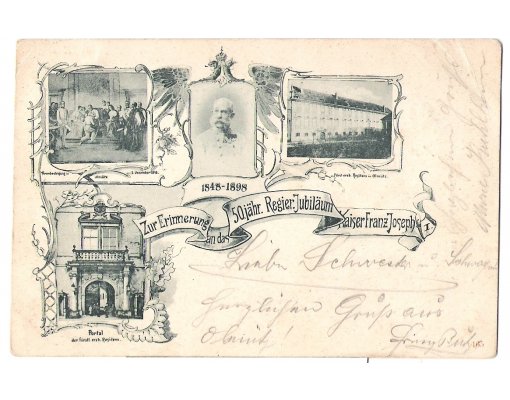 Thronbesteigung in Olmütz 2. Dezember 1848.
1848-1898
Fürst-erzb. Residenz in Olmütz.
Zur Erinnerung
an das
50jähr. Regier. Jubiläum
Kaiser Franz Joseph I.
Portal
der fürstl. erzb. Residenz.
Liebe Schwester u Schwager
Herzlichen Gruß aus
Olmütz!